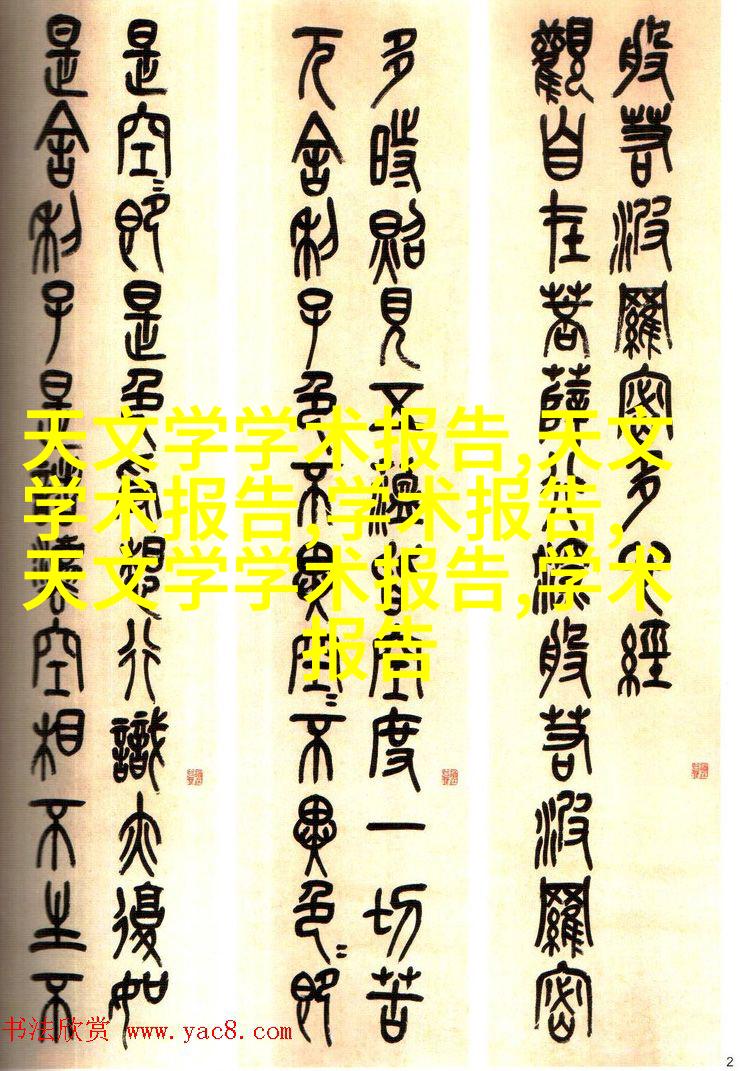 般若波羅密多心經
觀自在菩薩行深般若波羅密
多時照見五蘊皆空度一切苦
厄舍利子色不異空〻不異色〻即
是空〻即是色受想行識亦復如
是舍利子是諸法空相不生不
天文学学术报告,天文
学术报告,学术报告,
天文学学术报告,学术
报告
书法欣赏 www.yac8.com
2